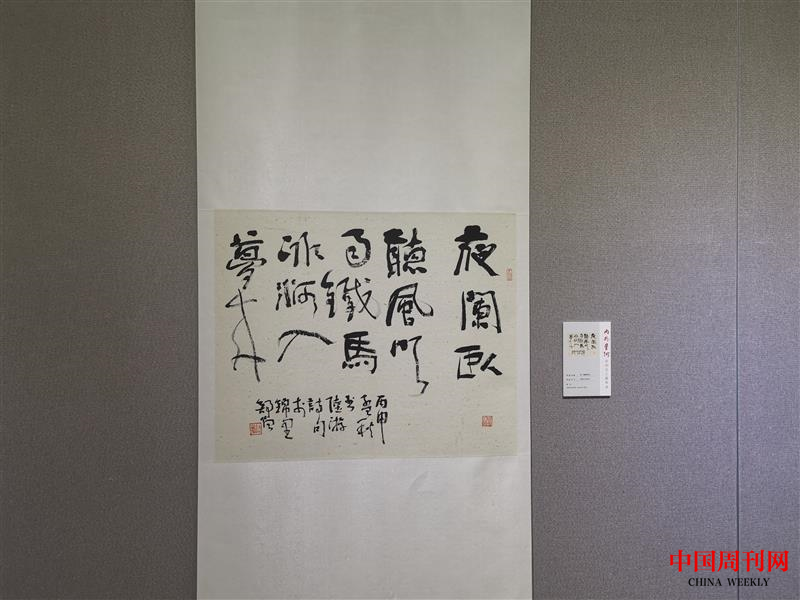 夜闌臥
聽風吹
雨鐵馬
冰河入
夢来
丙申
孟秋
书
陸游
詩句
於
錦里
中国周刊网
CHINA WEEKLY